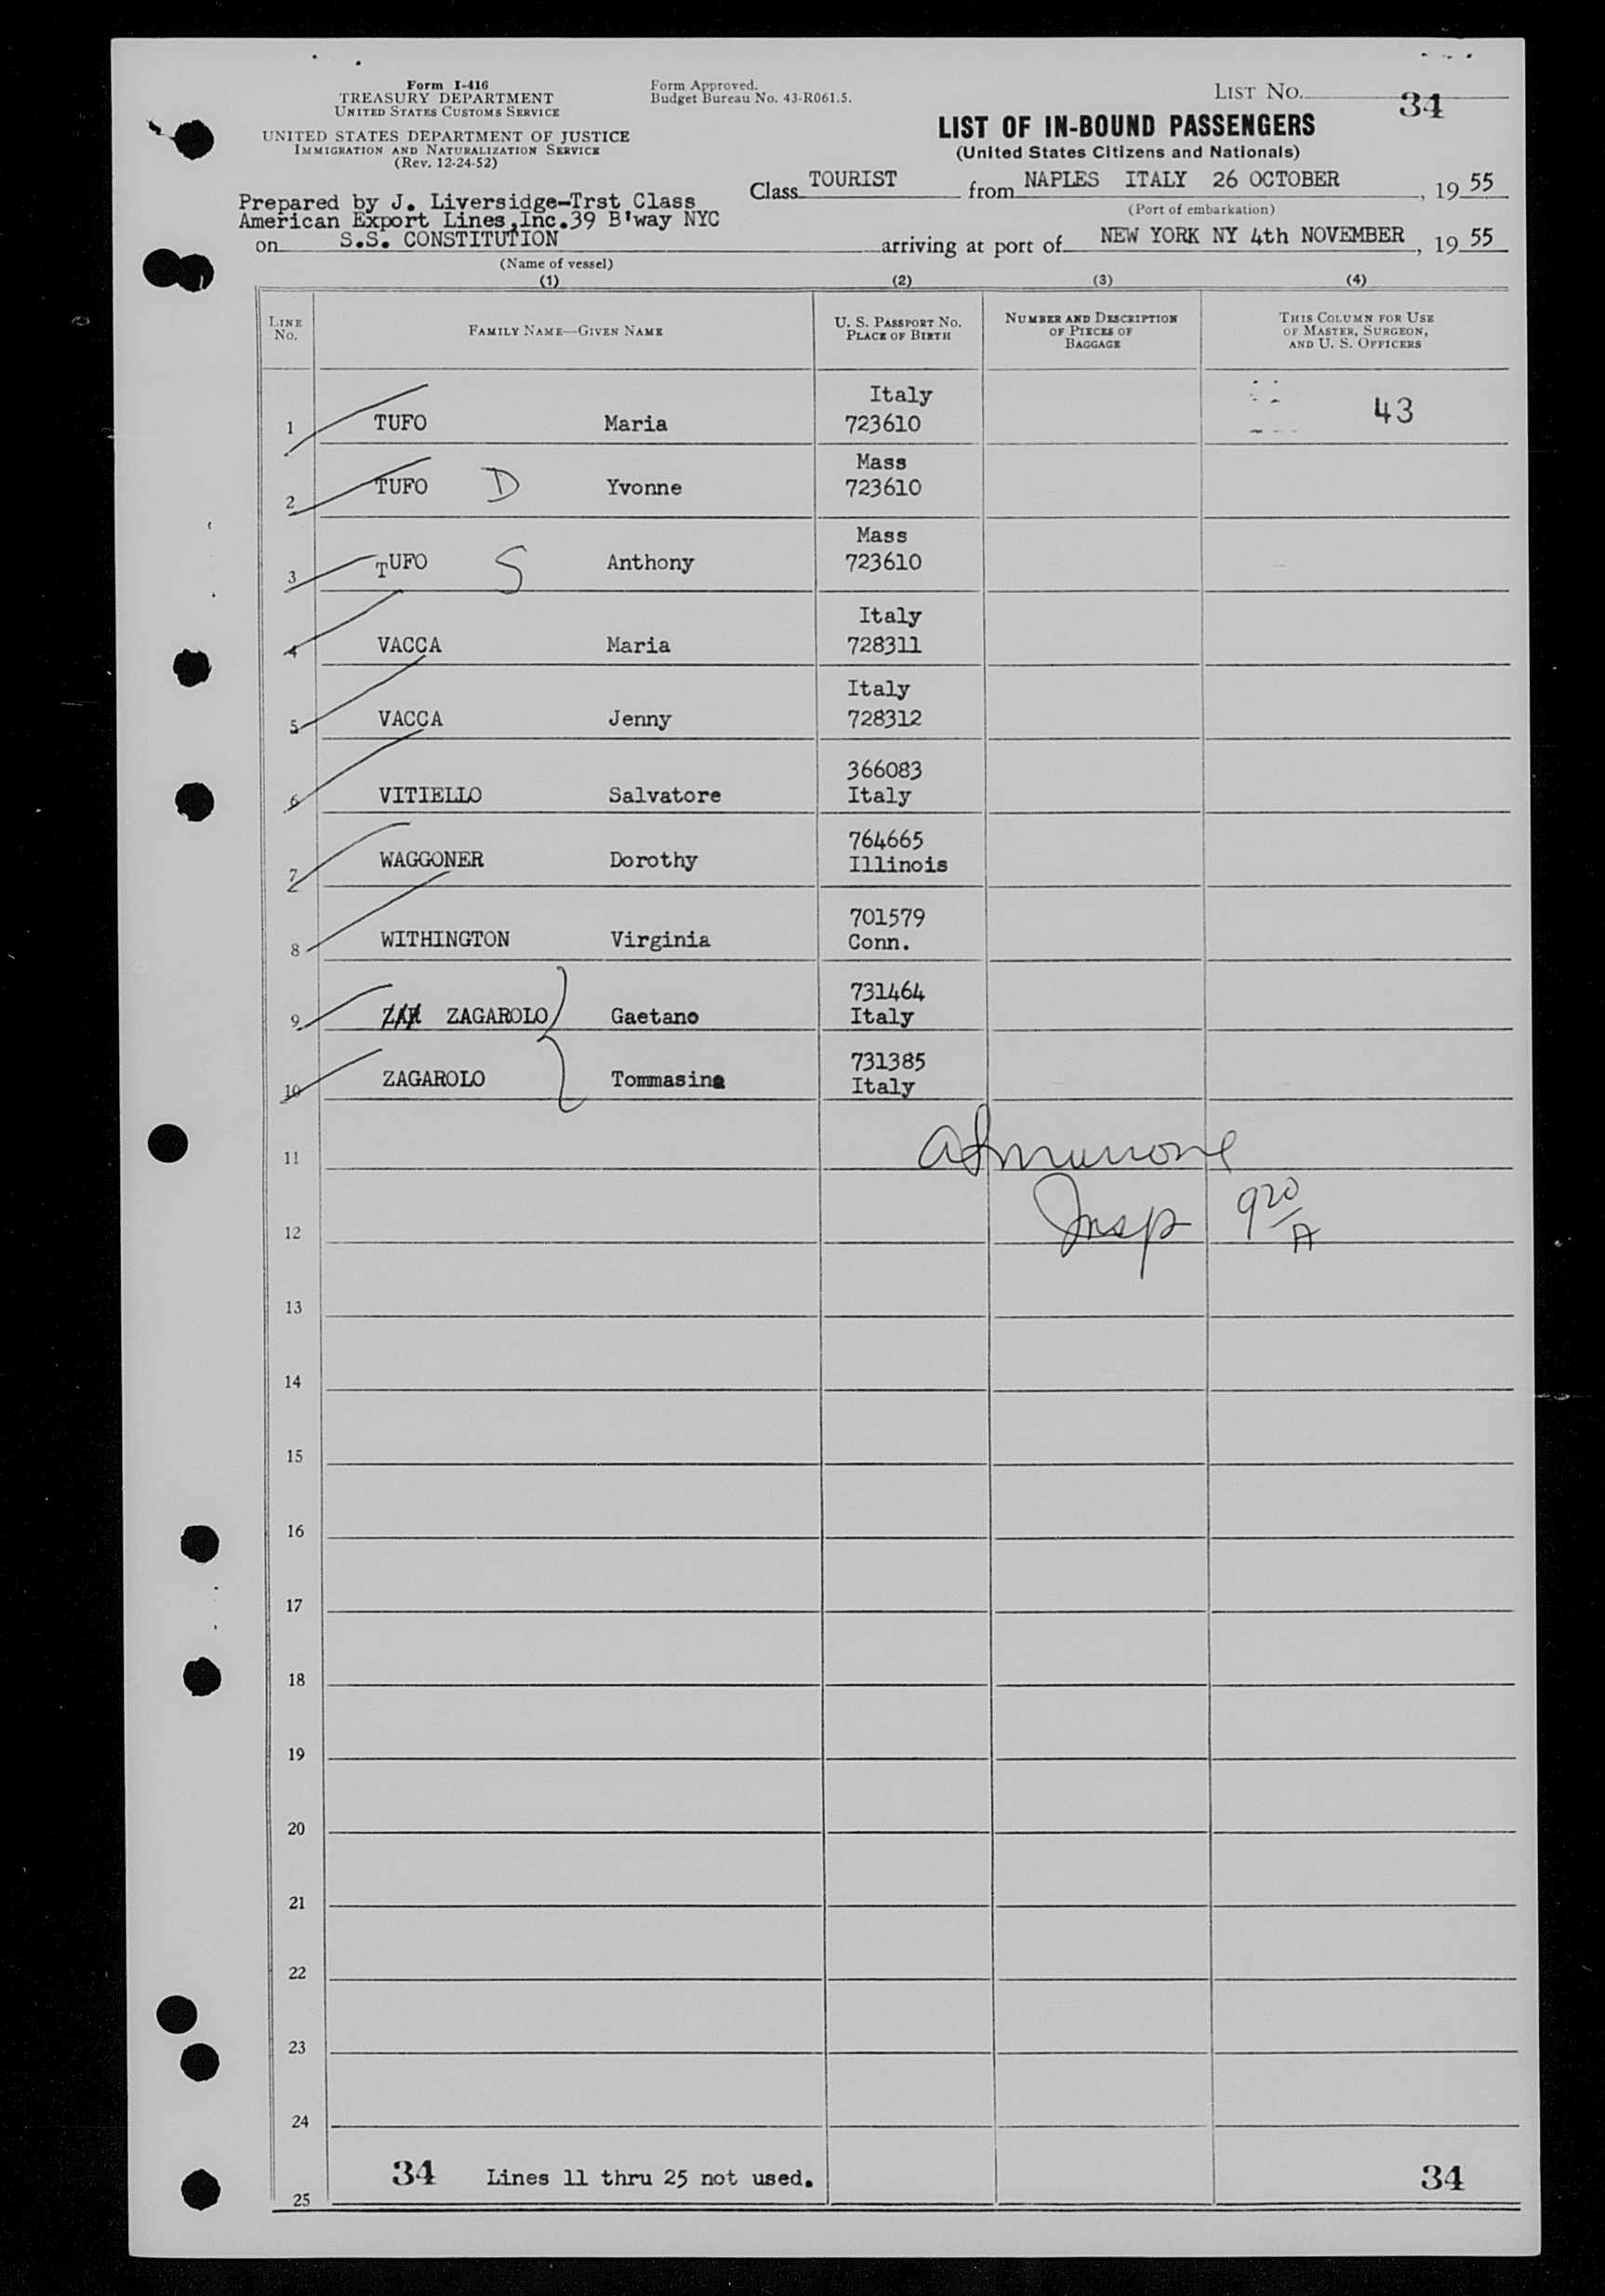 Form I-416
TREASURY DEPARTMENT
UNITED STATES CUSTOMS SERVICE
UNITED STATES DEPARTMENT OF JUSTICE
IMMIGRATION AND NATURALIZATION SERVICE
(Rev. 12-24-52)
Form Approved.
Budget Bureau No. 43-R061.5.
LIST NO. 34
LIST OF IN-BOUND PASSENGERS
(United States Citizens and Nationals)
Class TOURIST from NAPLES ITALY 26 OCTOBER, 19 55
(Port of embarkation)
Prepared by J. Liversidge-Trst Class
American Export Lines,Inc.39 B'way NYC
on S.S. CONSTITUTION arriving at port of NEW YORK NY 4th NOVEMBER, 19 55
(Name of vessel)
(1) (2) (3) (4)
LINE NO.
FAMILY NAME—GIVEN NAME
U. S. PASSPORT NO.
PLACE OF BIRTH
NUMBER AND DESCRIPTION
OF PIECES OF
BAGGAGE
THIS COLUMN FOR USE
OF MASTER, SURGEON,
AND U. S. OFFICERS
Italy
1 TUFO Maria 723610 43
Mass
2 TUFO D Yvonne 723610
Mass
3 TUFO S Anthony 723610
Italy
4 VACCA Maria 728311
Italy
5 VACCA Jenny 728312
366083
6 VITIELLO Salvatore Italy
764665
7 WAGGONER Dorothy Illinois
701579
8 WITHINGTON Virginia Conn.
731464
9 ZAR ZAGAROLO Gaetano Italy
731385
10 ZAGAROLO Tommasina Italy
11
12 Insp 920/A
13
14
15
16
17
18
19
20
21
22
23
24
34 Lines 11 thru 25 not used. 34
25